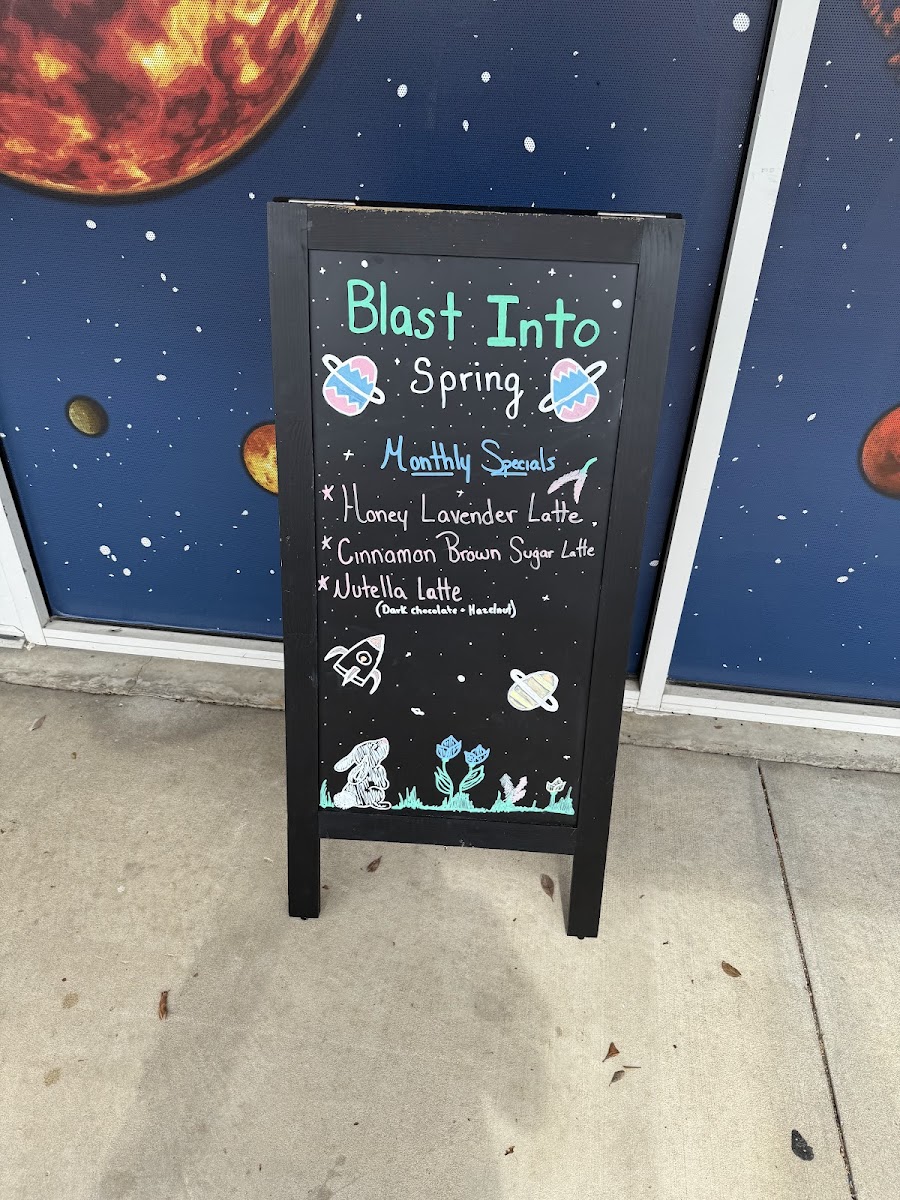 Blast Into
Spring
Monthly Specials
* Honey Lavender Latte
* Cinnamon Brown Sugar Latte
* Nutella Latte
(Dark chocolate + Hazelnut)